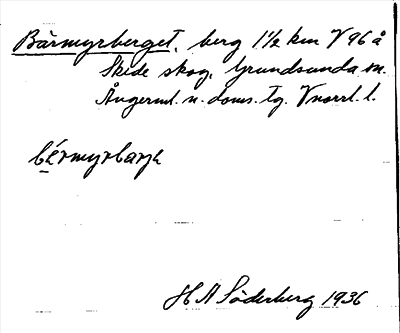 Bärmyrberget, berg 1½ km V 96 å
Skide skog, Grundsunda sn.
Ångerml. n. doms. tg. Vnorrl. l.
bérmyrbarjh
H A Söderberg 1936